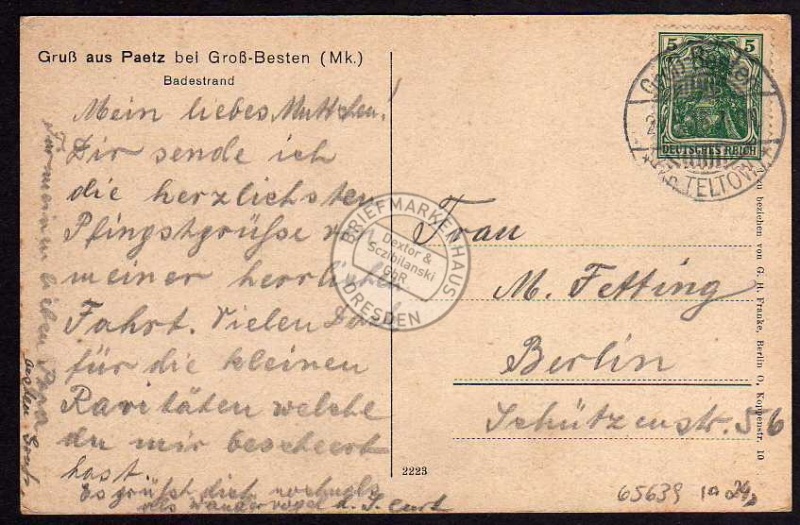 Gruß aus Paetz bei Groß-Besten (Mk.)
Badestrand
Mein liebes Muttchen!
Dir sende ich
die herzlichsten
Pfingstgrüße von
meiner herrlichen
Fahrt. Vielen Dank
für die kleinen
Raritäten welche
du mir beschert
hast.
Es grüßt dich nochmals
als Wandervogel d. S. Curt
lieben Papa
5 5
DEUTSCHES REICH
TELTOW
Frau
M. Fetting
Berlin
Schützenstr. 56
zu beziehen von G. H. Franke, Berlin O, Koppenstr. 10
2223
65639
BRIEFMARKENHAUS
Dextor &
Sczibilanski
GbR.
DRESDEN